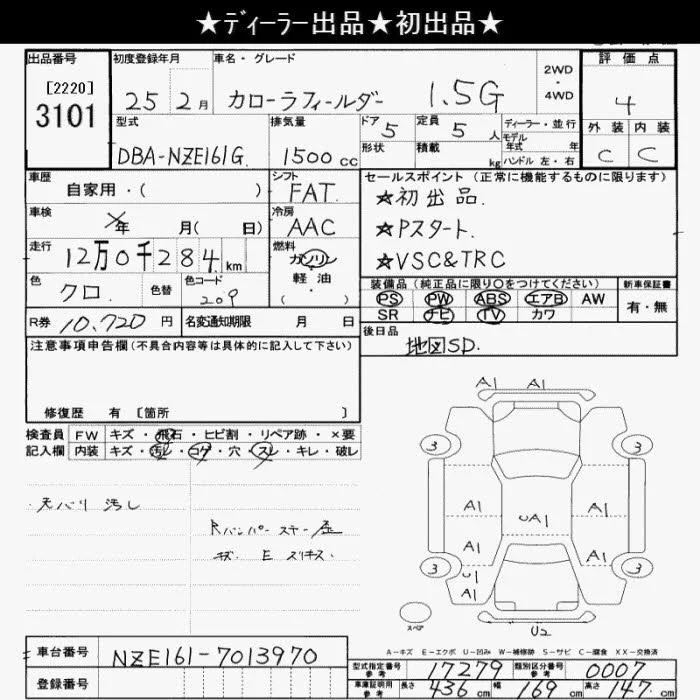 ★ディーラー出品★初出品★
出品番号 初度登録年月 車名・グレード 評価点
[2220]
3101
25 2月 カローラフィールダー 1.5G 2WD・4WD 4
外装 内装
C C
型式 排気量 ドア 定員 ディーラー・並行
DBA-NZE161G. 1500cc 5 5人 モデル年式 年
形状 積載 kg ハンドル 左・右
車歴 シフト セールスポイント(正常に機能するものに限ります)
自家用・( ) FAT. ★初出品.
車検 冷房 ★Pスタート.
年 月( 日) AAC ★VSC&TRC
走行 燃料
12万0千284km ガソリン
軽油
・( )
色 色替 色コード
クロ. 209
装備品(純正品に限り○をつけてください) 新車保証書
PS PW ABS エアB AW 有・無
SR ナビ TV カワ
R券 10.720円 名変通知期限 月 日
後日品
地図SD.
注意事項申告欄(不具合内容等は具体的に記入して下さい)
修復歴 有 〔箇所 〕
検査員 FW キズ・飛石・ヒビ割・リペア跡・×要
記入欄 内装 キズ・汚レ・コゲ・穴・スレ・キレ・破レ
天バリ 汚し
Rバンパー
E
A1 A1
3 3
A1 A1
UA1
A1 A1
3 3
U1
A1
スペア
U2
A-キズ E-エクボ U-凹み W-補修跡 S-サビ C-腐食 XX-交換済
車台番号 NZE161-7013970
登録番号
型式指定番号 参考 17279 類別区分番号 参考 0007
車庫証明用 参考 長さ 436cm 幅 169cm 高さ 147cm